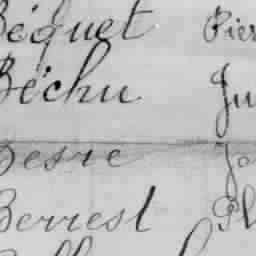 Béquet Pier
Béchu Ju
Besre Jo
Berrest Ph